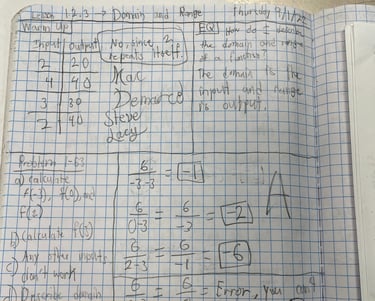 Lesson 1.2.3 → Domain and Range Thursday 9/1/22
Warm Up
Input | Output
2 | 20
4 | 40
3 | 30
2 | 40
No, since 2
repeats itself.
Mac
Demarco
Steve
Lacy
EQ How do I describe
the domain and range
of a function?
The domain is the
input and range
is output.
Problem 1-63
a) calculate
f(-3), f(0), and
f(2)
b) Calculate f(3)
c) Any other inputs
don't work
d) Describe domain
6/-3-3 = -1
6/0-3 = 6/-3 = -2
6/2-3 = 6/-1 = -6
A
6 = 6 = Error, you can't